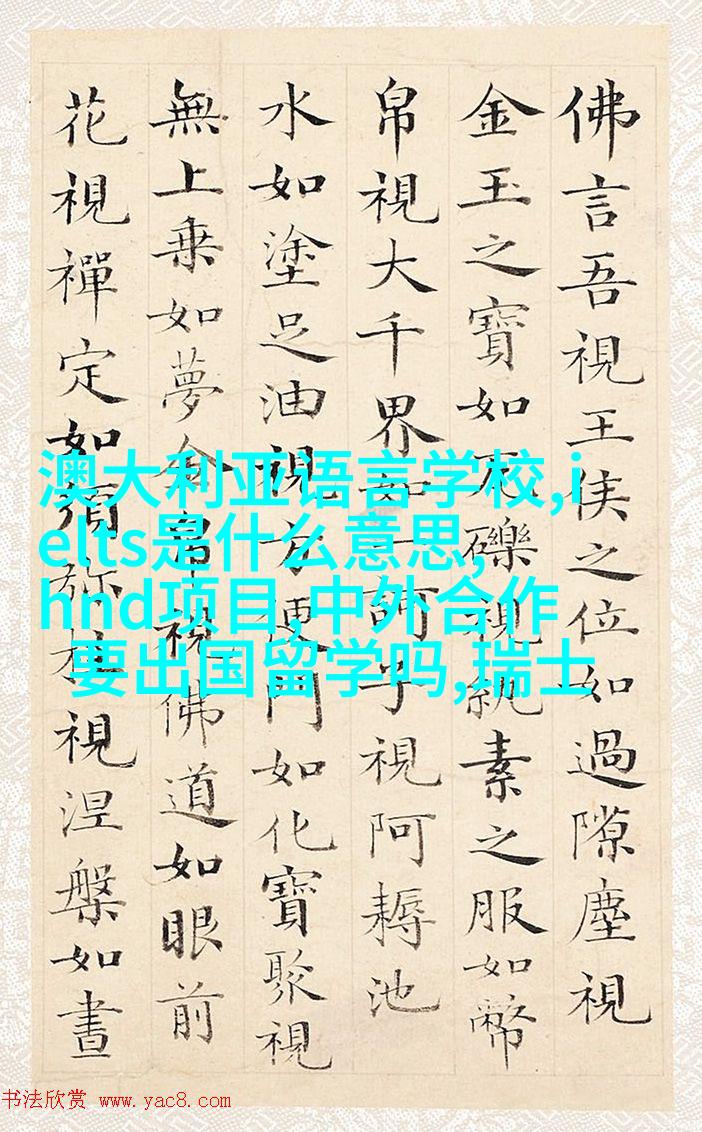 佛言吾視王侯之位如過隙塵視
金玉之寶如瓦礫視紈素之服如幣
帛視大千界如一訶子視阿耨池
水如塗足油視方便門如化寶聚視
無上乗如夢金帛視佛道如眼前
花視禪定如須弥柱視涅槃如晝
澳大利亚语言学校,i
elts是什么意思,
hnd项目,中外合作
要出国留学吗,瑞士
书法欣赏 www.yac8.com